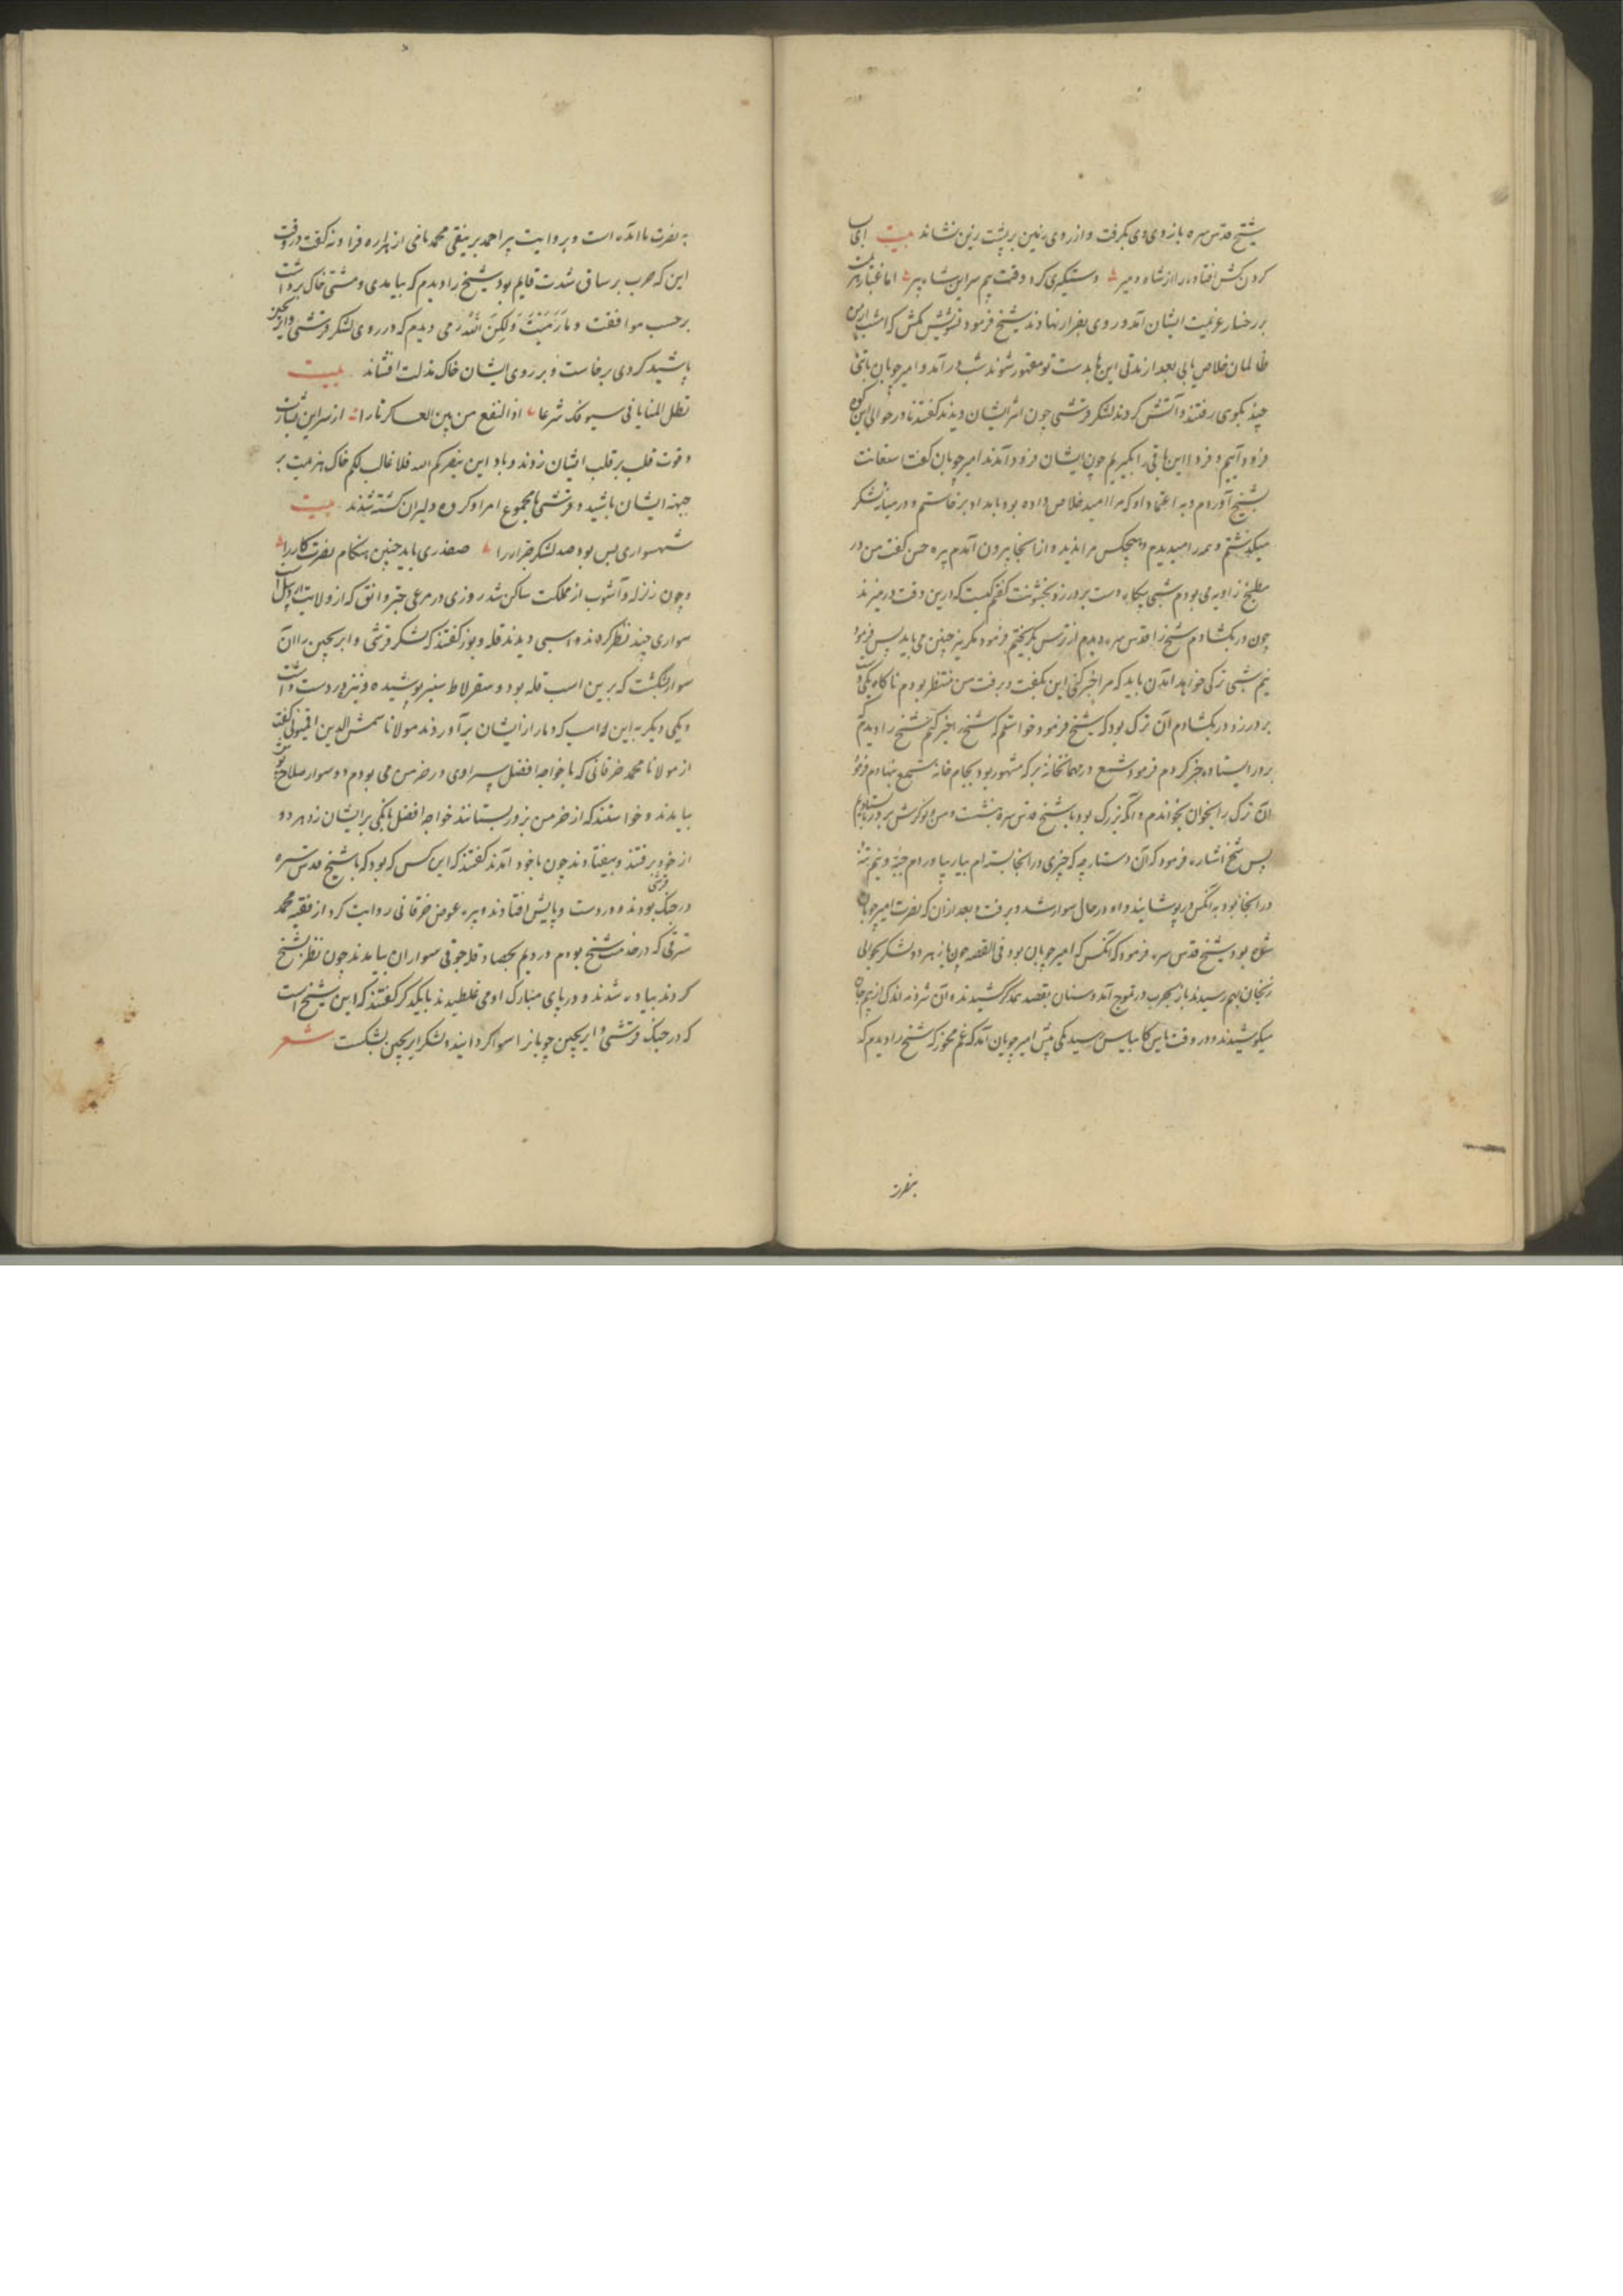 شیخ قدس سره بازوی وی بگرفت و از روی زمین بر پشت زین نشاند بیت ای
کردن کش افتاده را از شاه و میر دستگیری کرد وقت بیم سر این شاه پیر اما غبار هزیمت
بر رخسار عزیمت ایشان آمد و روی بفرار نهادند شیخ فرمود تشویش مکش که امشب ازین
ظالمان خلاص یابی بعد از مدتی این ها بدست تو مقهور شوند شب در آمد و امیر چوپان با تنی
چند بکوی رفتند و آتش کردند لشکر قرشی چون اثر ایشان دیدند گفتند ما در حوالی این کوه
فرود آییم و فردا این باقی را بگیریم چون ایشان فرود آمدند امیر چوپان گفت استعانت
بشیخ آوردم و به اعتماد او که مرا امید خلاص داده بود بامداد برخاستم و در میان لشکر
میگذشتم و همه را میدیدم و هیچکس مرا ندید و از آنجا بیرون آمدم پره حسن گفت من در
مطبخ زاویه می بودم شبی بیکاه دست بر در زد بخشونت گفتم کیست که درین وقت در میزند
چون در بکشادم شیخ را قدس سره دیدم از ترس بگریختم فرمود مگریز چنین می باید پس فرمود
نیم شبی ترکی خواهد آمدن باید که مرا خبر کنی این بگفت و برفت من منتظر بودم ناگاه یکی
بر در زد در بکشادم آن ترک بود که شیخ فرمود خواستم که شیخ را خبر کنم شیخ را دیدم که
بر در ایستاده خبر کردم فرمود شمع در مهمانخانه بر که مشهور بود بجام خانه شمع بنهادم فرمود
آن ترک را بخوان بخواندم و آنکه بزرگ بود با شیخ قدس سره بنشست و من و نوکرش بر در بایستادیم
پس شیخ اشارت فرمود که آن دستارچه که چیزی در آنجا بسته ام بیار بیاوردم جبه و نیم تنه
در آنجا بود به آنکس در پوشانید و او در حال سوار شد و برفت و بعد از آن که نصرت امیر چوپان
شده بود شیخ قدس سره فرمود که آنکس که امیر چوپان بود فی القصه چون باز هر دو لشکر بحوالی
زنجان بهم رسیدند باز بحرب در تموج آمد و سنان بقصد همدگر کشیدند و آن شرذمه اندک از بیم جان
میکوشیدند و در وقت یکی پیش امیر چوپان آمد که غم مخور که شیخ را دیدم که
بنصرت
به نصرت ما آمده است و بروایت پیر احمد برنیقی محمد نامی از هزاره فراونه گفت در وقت
این که حرب بر ساق شدت قایم بود شیخ را دیدم که بیامدی و مشتی خاک برداشت
برحسب موافقت و ما رَمَیْتَ وَلکِنَّ اللّهَ رَمی دیدم که در روی لشکر قرشی و ایرنجین
پاشید گردی برخاست و بر روی ایشان خاک مذلت افشاند بیت
تظل المنایا فی سیوفک شرعا اذا النقع من بین العساکر ثارا از سر این
و قوت قلب بر قلب ایشان زدند و باد این ینصرکم الله فلا غالب لکم خاک هزیمت بر
جبهه ایشان پاشید و قرشی با مجموع امرا و کرده دلیران کشته شدند بیت
شهسواری بس بود صد لشکر جرار را صفدری باید چنین هنگام نصرت کار را
و چون زلزله و آشوب از مملکت ساکن شد روزی در مرعی که از ولایت اردبیل است
سواری چند نظر کردند و اسبی دیدند قله و بوز گفتند که لشکر قرشی و ایرنجین را آن
سوار بشکست که برین اسب قله بود و سقرلاط سبز پوشیده و نیزه در دست داشت
و یکی دیگر به این اسب که دمار از ایشان برآوردند مولانا شمس الدین گفت
از مولانا محمد خرقانی که با خواجه افضل سراوی در خرمن می بودم دو سوار سلاح
بیامدند و خواستند که از خرمن بزور بستانند خواجه افضل بانگی بر ایشان زد هر دو
از خود برفتند و بیفتادند چون باخود آمدند گفتند که این کس که بود که با شیخ قدس سره
در جنک قرشی بودند و در دست و پایش افتادند و پیره عوض خرقانی روایت کرد از فقیه محمد
که در خدمت شیخ بودم سواران بیامدند چون نظر بشیخ
کردند پیاده شدند و در پای مبارک او می غلطیدند با یکدگر گفتند که این شیخ است
که در جنک قرشی و ایرنجین چوپانرا سوار گردانید و لشکر ایرنجین بشکست شعر